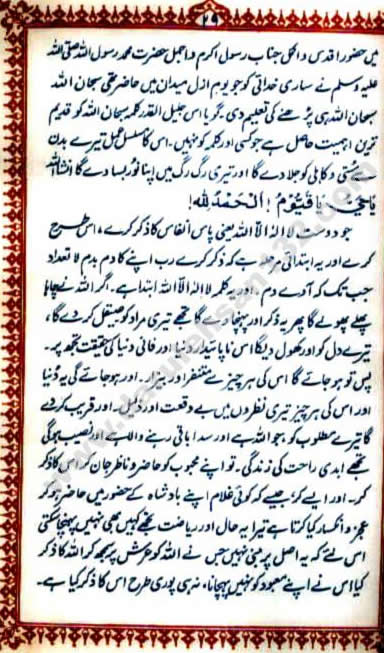 ۲۹
میں حضور اقدس و اکمل جناب رسول اکرم و اجمل حضرت محمد رسول اللہ صلی اللہ
علیہ وسلم نے ساری خدائی کو جو یوم ازل میدان میں حاضر تھی سبحان اللہ
سبحان اللہ ہی پڑھنے کی تعلیم دی۔ گویا اس جلیل القدر کلمہ سبحان اللہ کو قدیم
ترین اہمیت حاصل ہے جو کسی اور کلمہ کو نہیں۔ اس کا مسلسل عمل تیرے بدن
سے سستی و کاہلی کو جلا دے گا اور تیری رگ رگ میں اپنا نور بسا دے گا انشاءاللہ
یا حی یا قیوم! الحمدللہ!
جو دوست لا الہ الا اللہ یعنی پاس انفاس کا ذکر کرے، اس طرح
کرے اور یہ ابتدائی مرحلہ ہے کہ ذکر کرے رب اپنے کا دم بدم لا تعداد
جب تک کہ آوے دم۔ اور یہ کلمہ لا الہ الا اللہ ابتدا ہے۔ اگر اللہ نے چاہا
پھلے پھولے گا پھر یہ ذکر اور پہنچا دے گا تجھے تیری مراد کو صیقل کر دے گا،
تیرے دل کو اور کھول دیگا اس ناپائیدار دنیا اور فانی دنیا کی حقیقت تجھ پر۔
پس تو ہو جائے گا اس کی ہر چیز سے متنفر اور بیزار۔ اور ہو جائے گی یہ دنیا
اور اس کی ہر چیز تیری نظروں میں بے وقعت اور ذلیل۔ اور قریب کر دے
گا تیرے مطلوب کو جو اللہ ہے اور سدا باقی رہنے والا ہے اور نصیب ہوگی
تجھے ابدی راحت کی زندگی۔ تو اپنے محبوب کو حاضر و ناظر جان کر اس کا ذکر
کر۔ اور ایسے کر جیسے کہ کوئی غلام اپنے بادشاہ کے حضور میں حاضر ہو کر
عجز و انکسار کیا کرتا ہے تیرا یہ حال اور ریاضت تجھے کہیں بھی نہیں پہنچا سکتی
اس لئے کہ یہ اصل پر مبنی نہیں جس نے اللہ کو عرش پر سمجھ کر اللہ کا ذکر
کیا اس نے اپنے معبود کو نہیں پہچانا، نہ ہی پوری طرح اس کا ذکر کیا ہے۔